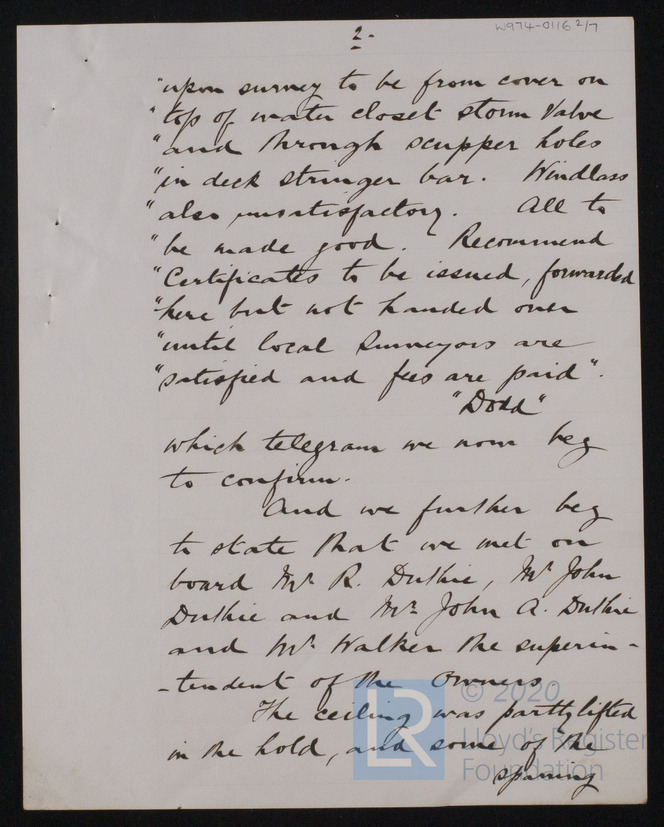 W974-0116 2/7
2.
"upon survey to be from cover on
"top of water closet storm valve
"and through scupper holes
"in deck stringer bar. Windlass
"also unsatisfactory. All to
"be made good. Recommend
"Certificates to be issued, forwarded
"here but not handed over
"until local Surveyors are
"satisfied and fees are paid".
"Dodd"
which telegram we now beg
to confirm.
And we further beg
to state that we met on
board Mr. R. Duthie, Mr. John
Duthie and Mr. John A. Duthie
and Mr. Walker the superin-
-tendent of the Owners.
The ceiling was partly lifted
in the hold, and some of the
sparring
LR © 2020
Lloyd's Register
Foundation